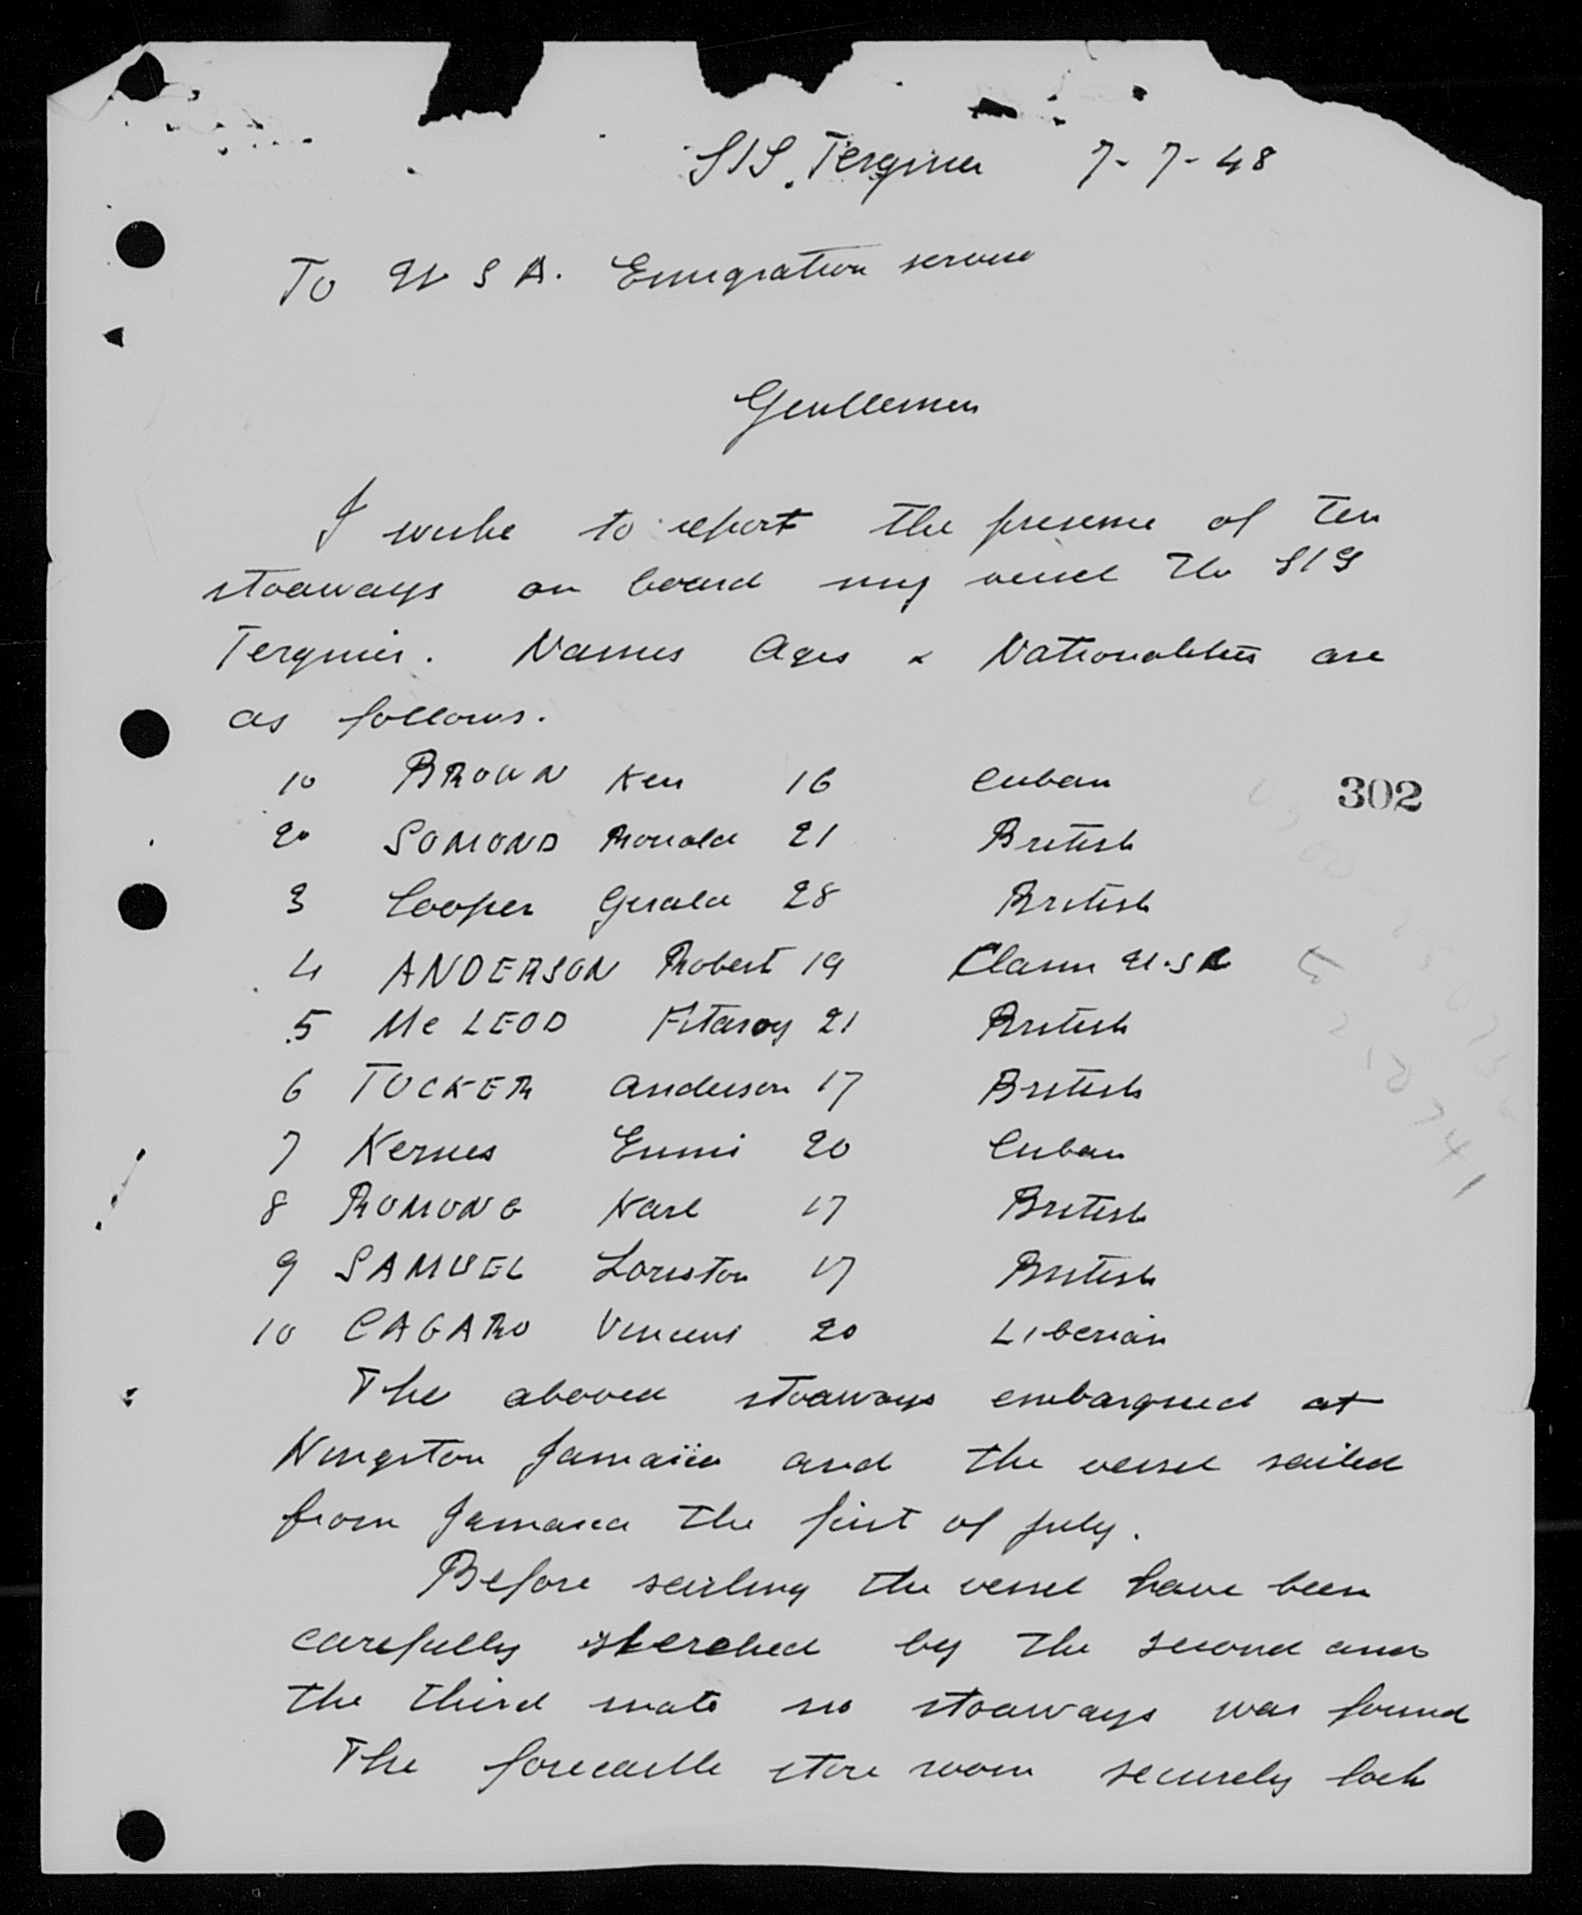 S/S. Tergnier 7-7-48
To U S A. Emigration service
Gentlemen
I wishe to report the presence of ten
stoaways on board my vessel the S/S
Tergnier. Names Ages & Nationalities are
as follows.
10 BROWN Ken 16 Cuban
302
20 SOMOND Ronald 21 British
3 Cooper Gerald 28 British
4 ANDERSON Robert 19 Claim U.S A
5 Mc LEOD Fitzroy 21 British
6 TUCKER Anderson 17 British
7 Kernes Ennis 20 Cuban
8 ROMONG Karl 17 British
9 SAMUEL Loriston 17 British
10 CAGARO Vincent 20 Liberian
The aboved stoaways embarqued at
Kingston Jamaïca and the vessel sailed
from Jamaica the first of july.
Before sailing the vessel have been
carefully sherched by the second and
the third mate no stoaways was found
The forecastle store room securely lock